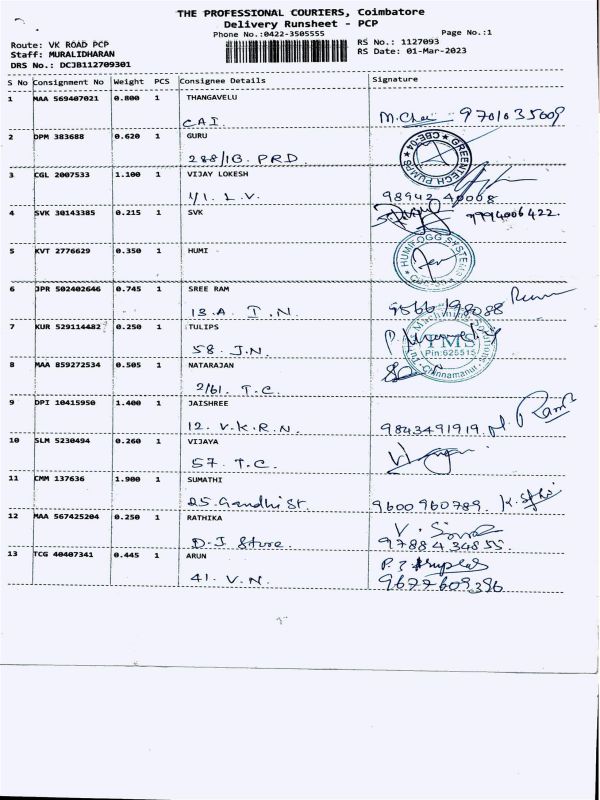 THE PROFESSIONAL COURIERS, Coimbatore
Delivery Runsheet - PCP
Phone No.:0422-3505555
Page No.:1
Route: VK ROAD PCP
RS No.: 1127093
Staff: MURALIDHARAN
RS Date: 01-Mar-2023
DRS No.: DCJB112709301
S No Consignment No Weight PCS Consignee Details Signature
1 MAA 569407021 0.800 1 THANGAVELU
CAI. 9701035609
2 DPM 383688 0.620 1 GURU
288/1G. PRD.
CBE-04 GREENTECH PUMPS
3 CGL 2007533 1.100 1 VIJAY LOKESH
1/1. L.V. 98942 40008
4 SVK 30143385 0.215 1 SVK
9994006422.
5 KVT 2776629 0.350 1 HUMI
6 JPR 502402646 0.745 1 SREE RAM
13.A I.N. 9566198088
7 KUR 529114482 0.250 1 TULIPS
58. J.N.
Machining Solutions
TMS
Pin:625515
Chinnamanur.
8 MAA 859272534 0.505 1 NATARAJAN
2/61. T.C.
9 DPI 10415950 1.400 1 JAISHREE
12. V.K.R.N. 9843491919
10 SLM 5230494 0.260 1 VIJAYA
57. T.C.
11 CMM 137636 1.900 1 SUMATHI
25. Gandhi St. 9600960789.
12 MAA 567425204 0.250 1 RATHIKA
D-J Store. 9788434855.
13 TCG 40407341 0.445 1 ARUN
41. V.N. 9677609396